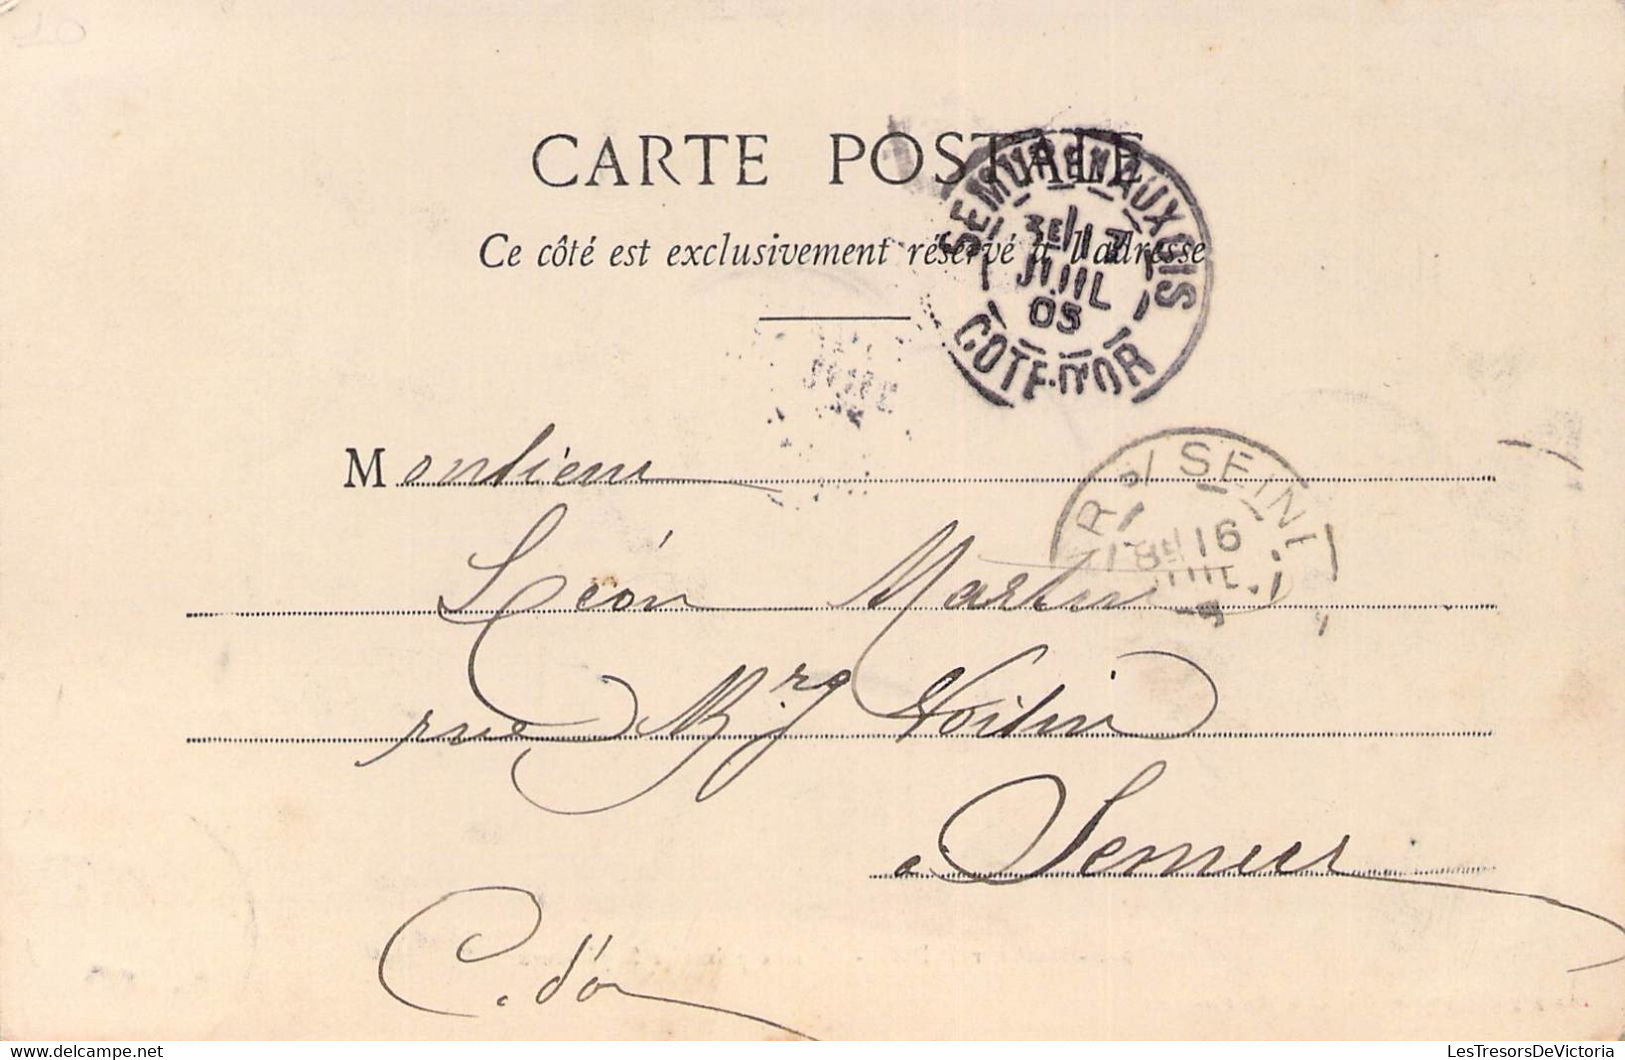 CARTE POSTALE
Ce côté est exclusivement réservé à l'adresse
SEMUR EN AUXOIS
3E 17
JUIL
05
COTE-D'OR
Monsieur
R S/ SEINE
8E 16
JUIL.
Léon Martin
rue Voisin
à Semur
C. d'or
LesTresorsDeVictoria
www.delcampe.net